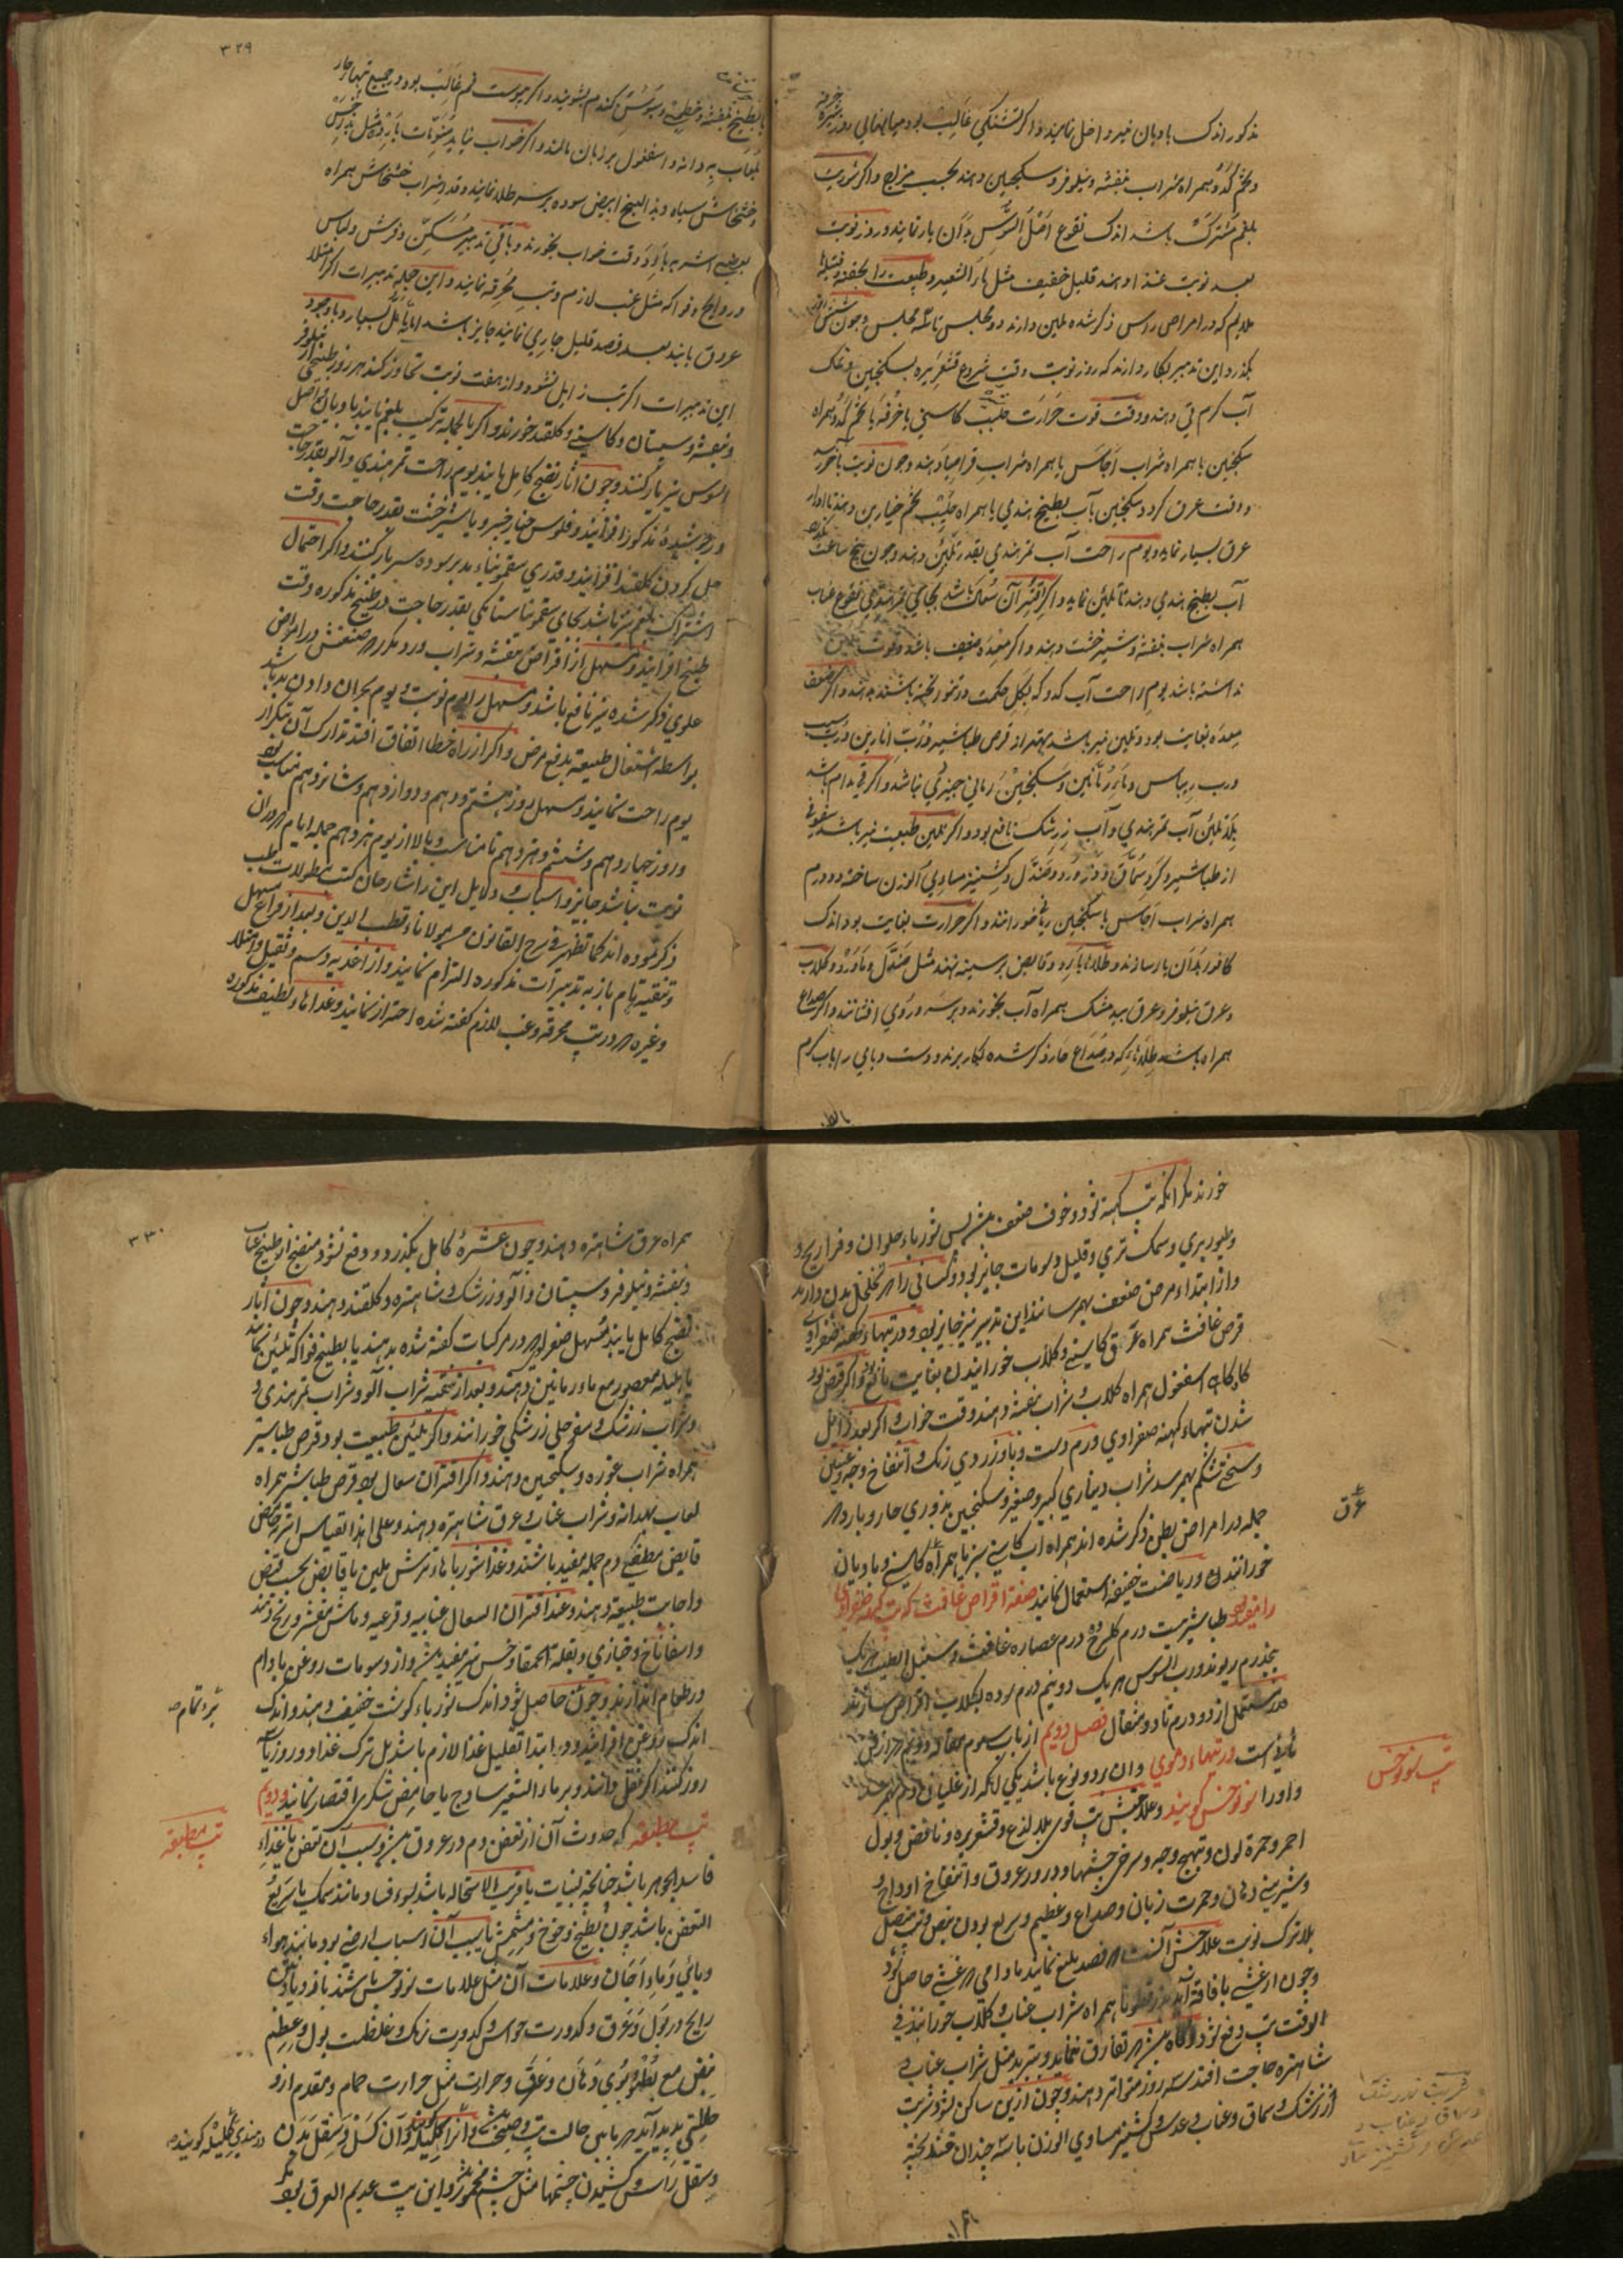 مذکور اندک بادیان نیز داخل نمایند و اکر تشنکی غالب بود میانهالی روز شیره خرفه
و تخم کدو همراه شراب بنفشه و نیلوفر و سکنجبین دهند بحسب مزاج و اکر شربت
بلغم مشترک باشد اندک نقوع اصل السوس بدان یار نمایند و روز نوبت
بعد نوبت غذا دهند قلیل خفیف مثل ماء الشعیر و طبیعت را بحقنه و فتیله
ملایم که در امراض راس ذکر شده لمین دارند دو مجلس تا سه مجلس و چون شش روز
بکذرد این تدبیر بکار دارند که روز نوبت وقت شروع قشعریره بسکنجبین و نمک
آب کرم قی دهند و وقت قوت حرارت حلیب کاسنی یا خرفه یا تخم کدو همراه
سکنجبین یا همراه شراب اجاص یا همراه شراب قراصیا دهند و چون نوبت بآخر رسد
و وقت عرق کردد سکنجبین بآب بطیخ هندی یا همراه حلیب تخم خیارین دهند تا ادرار
عرق بسیار نماید و یوم راحت آب تمرهندی بقدر تلیین دهند و چون پنج ساعت بکذرد
آب بطیخ هندی دهند تا تلیین نماید و اکر اقتران سعال باشد بجای تمرهندی نقوع عناب
همراه شراب بنفشه و شیرخشت دهند و اکر معده ضعیف باشد و قوت تلیین
نداشته باشد یوم راحت آب کدو که بکل حکمت در تنور پخته باشند بدهند و اکر ضعف
معده بغایت بود و تلین نیز باشد بهتر از قرص طباشیر و رب انارین و رب سیب
و رب ریباس و ماء رمانین و سکنجبین رمانی چیزی نباشد و اکر قی مدام باشد
بلا تلیین آب تمرهندی و آب زرشک نافع بود و اکر تلیین طبیعت نیز باشد سفوفی
از طباشیر و کرد سماق و زر ورد و صندل و کشنیز مساوی الوزن ساخته دو درم
همراه شراب اجاص یا سکنجبین رمانی خورانند و اکر حرارت بغایت بود اندک
کافور بدان یار سازند و طلاء بارد و قابض بر سینه نهند مثل صندل و ماورد و کلاب
و عرق نیلوفر و عرق بیدمشک همراه آب بخورند و بر سر و روی افشانند و اکر صداع
همراه باشد طلاء که در صداع حار ذکر شده بکار برند و دست و پای را باب کرم
۳۲۹
یا بطبیخ بنفشه و خطمی و سبوس کندم بشویند و اکر یبوست فم غالب بود در جمیع تبهاء حار
لعاب به دانه و اسفغول بر زبان مالند و اکر خواب نیاید منومات بارده مثل بزر خس
و خشخاش سیاه و بذر البنج ابیض سوده بر سر طلا نمایند و قدر شراب خشخاش همراه
بعضی اشربه بارد وقت خواب بخورند و باقی تدبیر مسکن و فرش و لباس
و روایح و فواکه مثل غب لازم و تب محرقه نمایند و این جمله تدبیرات اکر امتلا
عروق یابند بعد فصد قلیل جاری نمایند جایز باشد اما بتامل بسیار و با وجود
این تدبیرات اکر تب زایل نشود و از هفت نوبت تجاوز کند هر روز طبیخ نیلوفر
و بنفشه و سپستان و کاسنی و کلقند خورند و اکر بالجمله ترکیب بلغم یابند بادیان و اصل
السوس نیز یار کنند و چون آثار نضج کامل یابند یوم راحت تمرهندی و آلو بقدر حاجت
در جوشیده مذکور افزایند و فلوس خیارشنبر و یا شیرخشت بقدر حاجت وقت
حل کردن کلقند افزایند و قدری سقمونیاء مدبر سوده سربار کنند و اکر احتمال
اشتراک بلغم نیز باشد بجای سقمونیا سنا مکی بقدر حاجت در طبیخ مذکوره وقت
طبخ افزایند و مسهل از اقراص بنفشه و شراب ورد مکرر که صنعتش در امراض
علوی ذکر شده نیز نافع باشد و مسهل را یوم نوبت و یوم بحران دادن بد باشد
بواسطه اشتغال طبیعه بدفع مرض و اکر از راه خطا اتفاق افتد تدارک آن بتکرار
یوم راحت نمایند و مسهل روز هشتم و دهم و دوازدهم و شانزدهم مناسب بود
و روز چهاردهم و ششم و هژدهم نامناسب و بالا از یوم نوزدهم جمله ایام که دران
نوبت نباشد جایز و اسباب و دلایل این را شارحان کتب مطولات طب
ذکر نموده اند کما تظهر فی شرح القانون مولانا قطب الدین و بعد از فراغ مسهل
و تنقیه تام باز به تدبیرات مذکوره التزام نمایند و از اغذیه دسم و ثقیل و امتلا
و غیره که در تب محرقه و غب لازم کفته شده احتراز نمایند و غذاها لطیف مذکوره
خورند مکر آنکه تب کهنه شود و خوف ضعف بیشتر پس شورباء حلوان و فراریج
و طیور بری و سمک نهری و قلیل دسومات جایز بود و کسانی را که تخلخل بدن دارند
و از ابتداء مرض ضعف بهم رسانند این تدبیر نیز جایز بود و در تبهاء کهنه صفراوی
قرص غافث همراه عرق کاسنی و کلاب خورانیدن بغایت نافع بود و اکر قبض بود
کاه کاه اسفغول همراه کلاب و شراب بنفشه دهند وقت خواب و اکر بعد زایل
شدن تبهاء کهنه صفراوی ورم دست و پا و زردی رنک و انتفاخ وجه و عینین
و سختی شکم بهم رسد شراب دیناری کبیر و صغیر و سکنجبین بزوری حار و بارد که
جمله در امراض بطن ذکر شده اند همراه آب کاسنی سبز یا همراه کاسنی و بادیان
عرق
خورانند و ریاضت خفیفه استعمال نمایند صفة اقراص غافث که تب کهنه صفراوی
را نیز نافع طباشیر بیست درم کلسرخ ده درم عصاره غافث و سنبل الطیب هریک
پنجدرم ریوند و رب السوس هریک دو نیم درم سرده بکلاب اقراص سازند
مستعمل از دو درم تا دو مثقال فصل دویم از باب سوم
در تبهاء دموی و آن بر دو نوع باشد یکی آنکه از غلیان دم بهم رسد
تب سونوخس
و او را سونوخس کویند و علامتش تب قوی بلا لذع و قشعریره و نافض و بول
احمر و حمرة لون و تهیج وجه و سرخی چشمها و درور عروق و انتفاخ اوداج
و شیرینی دهان و حمرت زبان و صداع و عظیم و سریع بودن نبض و تب متصل
بلا ترک نوبت علاجش آنست که فصد بلیغ نمایند مادامی که غشی حاصل شود
و چون از غشی بافاقه آید بزرقطونا همراه شراب عناب و کلاب خورانند فی
الوقت تب دفع شود و کاه بیشتر که تفارق ننماید و تبرید مثل شراب عناب و
شاهتره حاجت افتد سه روز متواتر دهند و چون ازین ساکن نشود شربت
از زرشک و سماق و عناب و عدس و کشنیز مساوی الوزن با سه چندان قند پخته
۳۳۰
همراه عرق شاهتره دهند و چون عشره کامل بکذرد و دفع نشود منضج از طبیخ عناب
و بنفشه و نیلوفر و سپستان و آلو و زرشک و شاهتره و کلقند دهند و چون آثار
نضج کامل یابند مسهل صفرا که در مرکبات کفته شده بدهند یا بطبیخ فواکه تلیین نمایند
یا هلیله معصور مع ماء رمانین دهند و بعد از تنقیه شراب آلو و شراب تمرهندی
و شراب زرشک و سفرجلی زرشکی خورانند و اکر تلیین طبیعت بود قرص طباشیر
همراه شراب غوره و سکنجبین دهند و اکر اقتران سعال بود قرص طباشیر همراه
لعاب بهدانه و شراب عناب و عرق شاهتره دهند و علی هذا القیاس
قابض مطفی دم جمله مفید باشند و غذا شورباهاء ترش ملین یا قابض بحسب قبض
و اجابت طبیعه دهند و عند اقتران السعال عنابیه و قرعیه و ماش مقشر و برنج دهند
و اسفاناخ و خبازی و بقلة الحمقا و خس نیز مفید بیشتر و از دسومات روغن بادام
در طعام اندازند و چون حاصل شود اندک شورباء کوشت خفیف دهند و اندک
اندک روغن افزایند و در ابتدا تقلیل غذا لازم باشد بل ترک غذا دو روز یا سه
روز کنند اکر تحمل دانند و بر ماء الشعیر ساذج یا حامض شکری اقتصار نمایند دویم
تب مطبقه
تب مطبقه که حدوث آن از تعفن دم در عروق بیشتر و سبب آن تعفن یا غذاء
فاسد الجوهر باشد چنانچه نبیات یا قریب الاستحاله باشد بسوء فساد مانند سمک یا سریع
التعفن باشد چون بطیخ و خوخ و مشمش یا سبب آن اسباب ارضی بود مانند هواء
وبائی و ماء آجان و علامات آن مثل علامات سونوخس باشند با زیادتی
رایح در بول و عرق و کدورت حواس و کدورت رنک و غلظت بول و عظم
نبض مع بطؤ و بوی دهان و عرق و حرارت مثل حرارت حمام و مقدم ازو
حالتی پدید آید که مابین حالت تب و صحت بیشتر و آنرا و آن کسل و ثقل بدن
در هندی کویند
و ثقل راس و کشیدن چشمها مثل چشم مخمور و این تب عدیم العرق بود